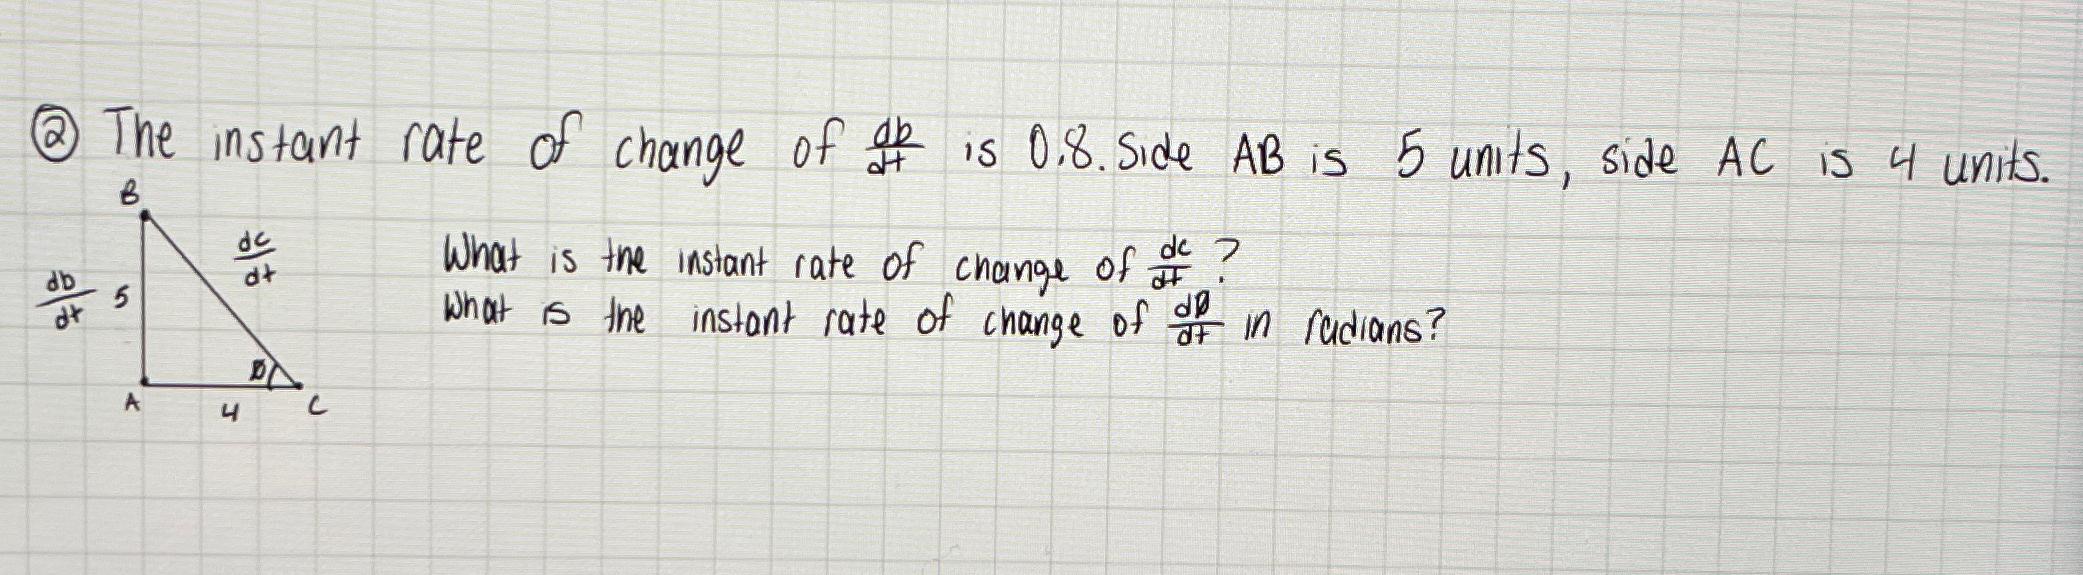 ② The instant rate of change of db/dt is 0.8. Side AB is 5 units, side AC is 4 units.
B
dc/dt
What is the instant rate of change of dc/dt?
db/dt 5
What is the instant rate of change of dØ/dt in radians?
Ø
A 4 C